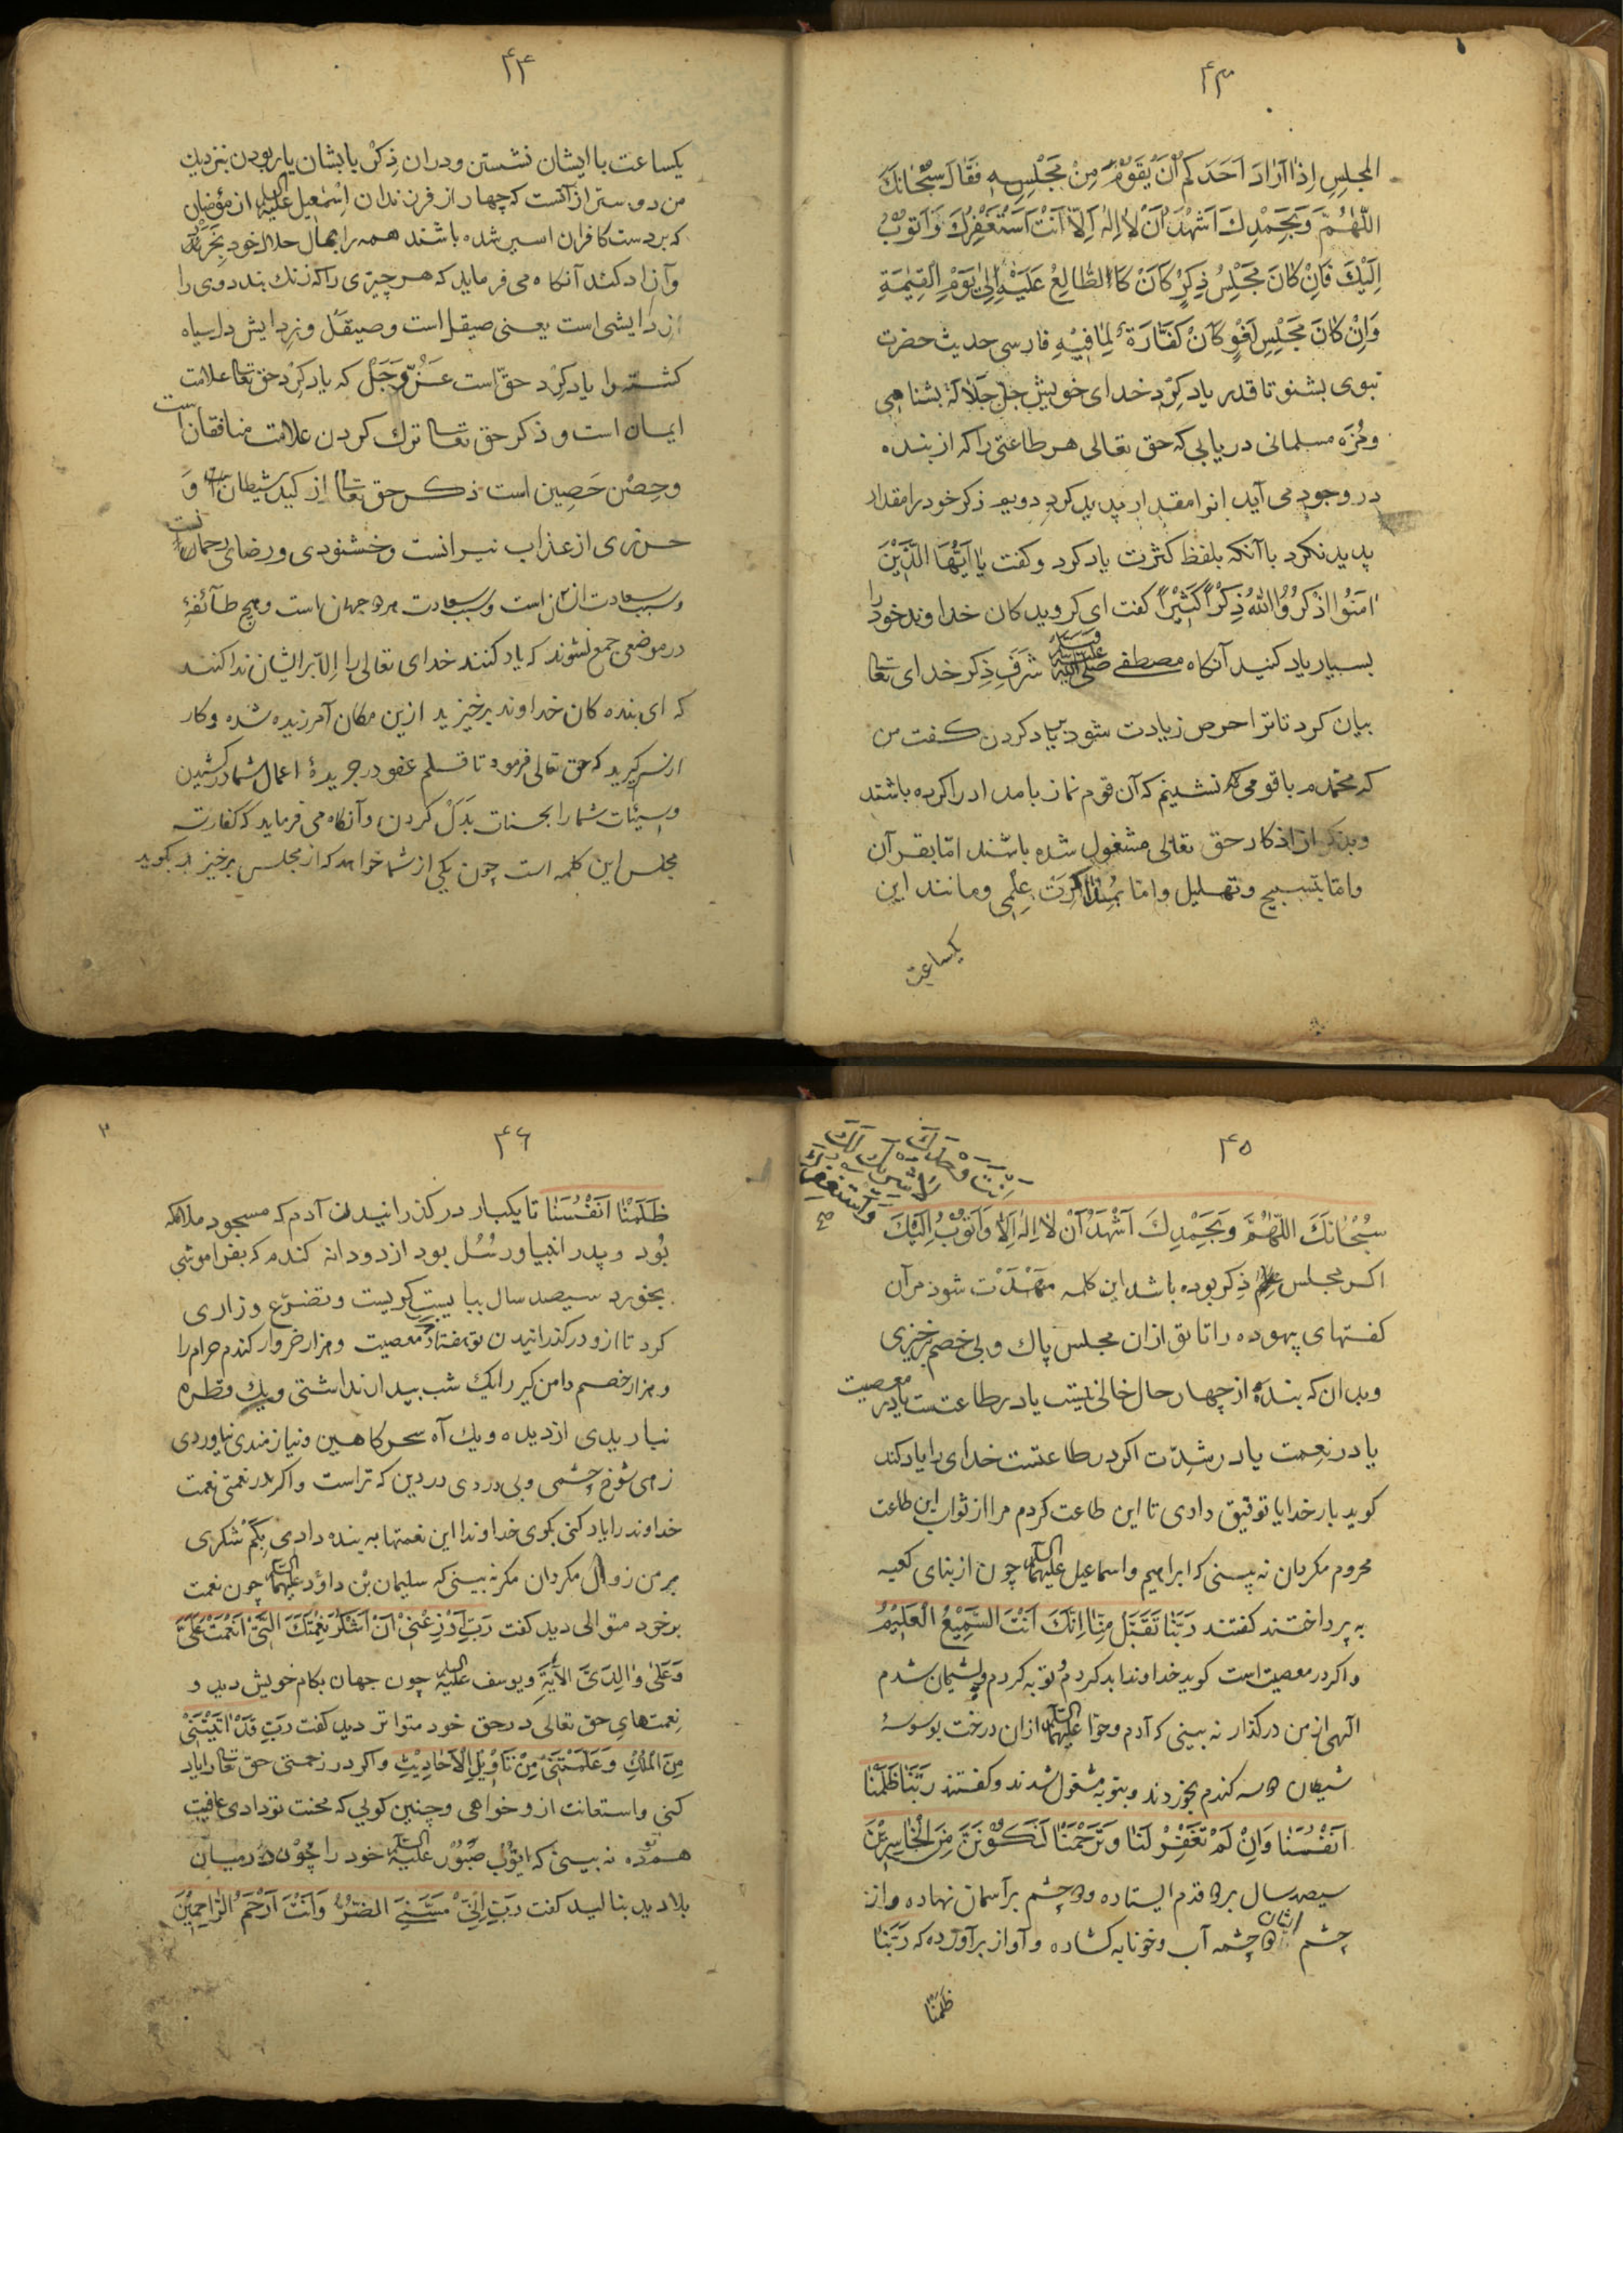 ۴۳
المجلِسِ اِذٰا اَرٰادَ اَحَدَكُم اَنْ يَقُوْمَ مِنْ مَجْلِسِهٖ فَقٰالَ سُبْحٰانَكَ
اللّٰهُمَّ وَبِحَمْدِكَ اَشْهَدُ اَنْ لٰا اِلٰهَ اِلّٰا اَنْتَ اَسْتَغْفِرُكَ وَاَتُوْبُ
اِلَيْكَ فَاِنْ كٰانَ مَجْلِسُ ذِكْرٍ كٰانَ كَالطّٰابِعْ عَلَيْهِ اِلىٰ يَوْمِ الْقِيٰمَةِ
وَاِنْ كٰانَ مَجْلِسِ لَغْوٍ كٰانَ كَفّٰارَةً لِمٰا فِيْهِ فارسی حدیث حضرت
نبوی بشنو تا قدر یاد کرد خدای خویش جلّ جَلٰالَهُ بشناسی
ومُزَه مسلمانی دریابی که حق تعالی هر طاعتی را که از بنده
در وجود می آید انرا مقدار پدید کرد ذکر خود را مقدار
پدید نکرد با آنکه بلفظ کثرت یاد کرد و کفت یٰا اَیُّهَا الَّذِیْنَ
اٰمَنُوا اذْکُرُوْا اللّٰهَ ذِکْرًا کَثِیْرًا کفت ای کرویدکان خداوند خود را
بسیار یاد کنید آنکاه مصطفی صلی الله علیه وسلم شَرَفِ ذِکر خدای تعالی
بیان کرد تا ترا حرص زیادت شود بیاد کردن کفت من
که محمدم با قومی که نشینم که آن قوم نماز بامداد را کرده باشند
وبذکر از اذکار حق تعالی مشغول شده باشند امّا بقرآن
وامّا بتسبیح و تهلیل وامّا بمُذٰاکَرَت عِلْمی ومانند این
یکساعت
۴۴
یکساعت با ایشان نشستن ودران ذِکرْ با یشان یار بودن بنزدیك
من دوستر از آنست که چهار از فرزندان اِسْمٰعیل علیه السلام از مؤمنان
که بر دست کافران اسیر شده باشند همه را بمال حلال خود بخرند
وآزاد کنند آنکاه می فرماید که هر چیزی را که زنك بند دوی را
زدایشی است یعنی صیقل است وصیقل وزدایش دل سیاه
کشته را یاد کرد حقّ است عَزَّ وَجَلّ که یاد کرد حق تعالی علامت
ایمان است و ذکر حق تعالی ترك کردن علامت منافقان است
وحِصْن حَصِین است ذکر حق تعالی از کید شیطان وَ
حرزی از عذاب نیرانست وخشنودی ورضای رحمان است
وسبب سعادت انسان است وسبب سعادت هر دو جهان است وهیچ طآئفهٔ
در موضعی جمع نشوند که یاد کنند خدای تعالی را اِلّا بر ایشان ندا کنند
که ای بنده کان خداوند برخیزید ازین مکان آمرزیده شده وکار
از سر کیرید که حق تعالی فرمود تا قلم عفو در جریدهٔ اعمال شما در کشیدن
وسیّئات شما را بحسنات بدَلْ کردن وآنکاه می فرماید که کفارت
مجلس این کلمه است چون یکی از شما خواهد که از مجلس برخیزد بکوید
۴۵
اَنْتَ وَحْدَكَ
لَا شَرِيكَ لَكَ
وَاَسْتَغْفِرُكَ
صح
سُبْحٰانَكَ اللّٰهُمَّ وَبِحَمْدِكَ اَشْهَدُ اَنْ لٰا اِلٰهَ اِلّٰا وَاَتُوْبُ اِلَيْكَ
اکر مجلس علم ذِکر بوده باشد این کلمه مُهَدَّت شود مر آن
کفتهای بیهوده را تا تو ازان مجلس پاك و بی خصم برخیزی
وبدان که بنده از چهار حال خالی نیست یا در طاعتست یا در معصیت
یا در نعِمت یا در شِدّت اکر در طاعتست خدای را یاد کند
کوید بار خدایا توفیق دادی تا این طاعت کردم مرا از ثواب این طاعت
محروم مکردان نه بینی که ابراهیم واسماعیل علیهما السلام چون از بنای کعبه
به پرداختند کفتند رَبَّنٰا تَقَبَّلْ مِنّٰا اِنَّكَ اَنْتَ السَّمِيْعُ الْعَلِيْمُ
واکر در معصیت است کوید خداوندا بد کردم وتوبه کردم وپشیمان شدم
الهی از من درکذار نه بینی که آدم وحوّا علیهما السلام ازان درخت بوسوسهٔ
شیطان دانه کندم بخوردند وبتوبه مشغول شدند وکفتند رَبَّنٰا ظَلَمْنٰا
اَنْفُسَنٰا وَاِنْ لَمْ تَغْفِرْ لَنٰا وَتَرْحَمْنٰا لَنَكُوْنَنَّ مِنَ الْخٰاسِرِيْنَ
سیصد سال بر دو قدم ایستاده و دو چشم بر آسمان نهاده واز
چشم ایشان دو چشمه آب وخونابه کشاده وآواز برآورده که رَبَّنٰا
ظَلَمْنٰا
۴۶
۳
ظَلَمْنٰا اَنْفُسَنٰا تا یکبار در کذرانیدن آدم که مسجود ملائکه
بُود وپدر انبیا ورسُل بود از دو دانه کندم که بفراموشی
بخورد سیصد سال ببایست کریست وتضرّع وزاری
کرد تا ازو درکذرانیدن تو هفتاد معصیت وهزار خروار کندم حرام را
وهزار خصم دامن کیر را یك شب بیدار نداشتی ویك قطره
نباریدی از دیده ویك آه سحرکاهین ونیازمندی نیاوردی
زهی شوخ چشمی وبی دردی در دین که تراست واکر در نعمتی نعمت
خداوند را یاد کنی بکوی خداوندا این نعمتها به بنده دادی بِکَم شُکری
بر من زوال مکردان مکر نه بینی که سلیمان بْن داؤد علیهما السلام چون نعمت
بر خود متوالی دید کفت رَبِّ اَوْزِعْنِيْ اَنْ اَشْكُرَ نِعْمَتَكَ الَّتِيْ اَنْعَمْتَ عَلَيَّ
وَعَلىٰ وٰالِدَيَّ الآيَةِ ویوسف علیه السلام چون جهان بکام خویش دید و
نعمتهای حق تعالی در حق خود متواتر دید کفت رَبِّ قَدْ اٰتَيْتَنِيْ
مِنَ الْمُلْكِ وَعَلَّمْتَنِيْ مِنْ تَأْوِيْلِ الْاَحٰادِيْثِ واکر در زحمتی حق تعالی را یاد
کنی واستعانت ازو خواهی وچنین کویی که محنت تو دادی عافیت
هم تو ده نه بینی که ایّوُب صَبُوْر علیه السلام خود را چُون در میان
بلا دید بنالید کفت رَبِّ اِنِّيْ مَسَّنِيَ الضُّرُّ وَاَنْتَ اَرْحَمُ الرّٰاحِمِيْنَ